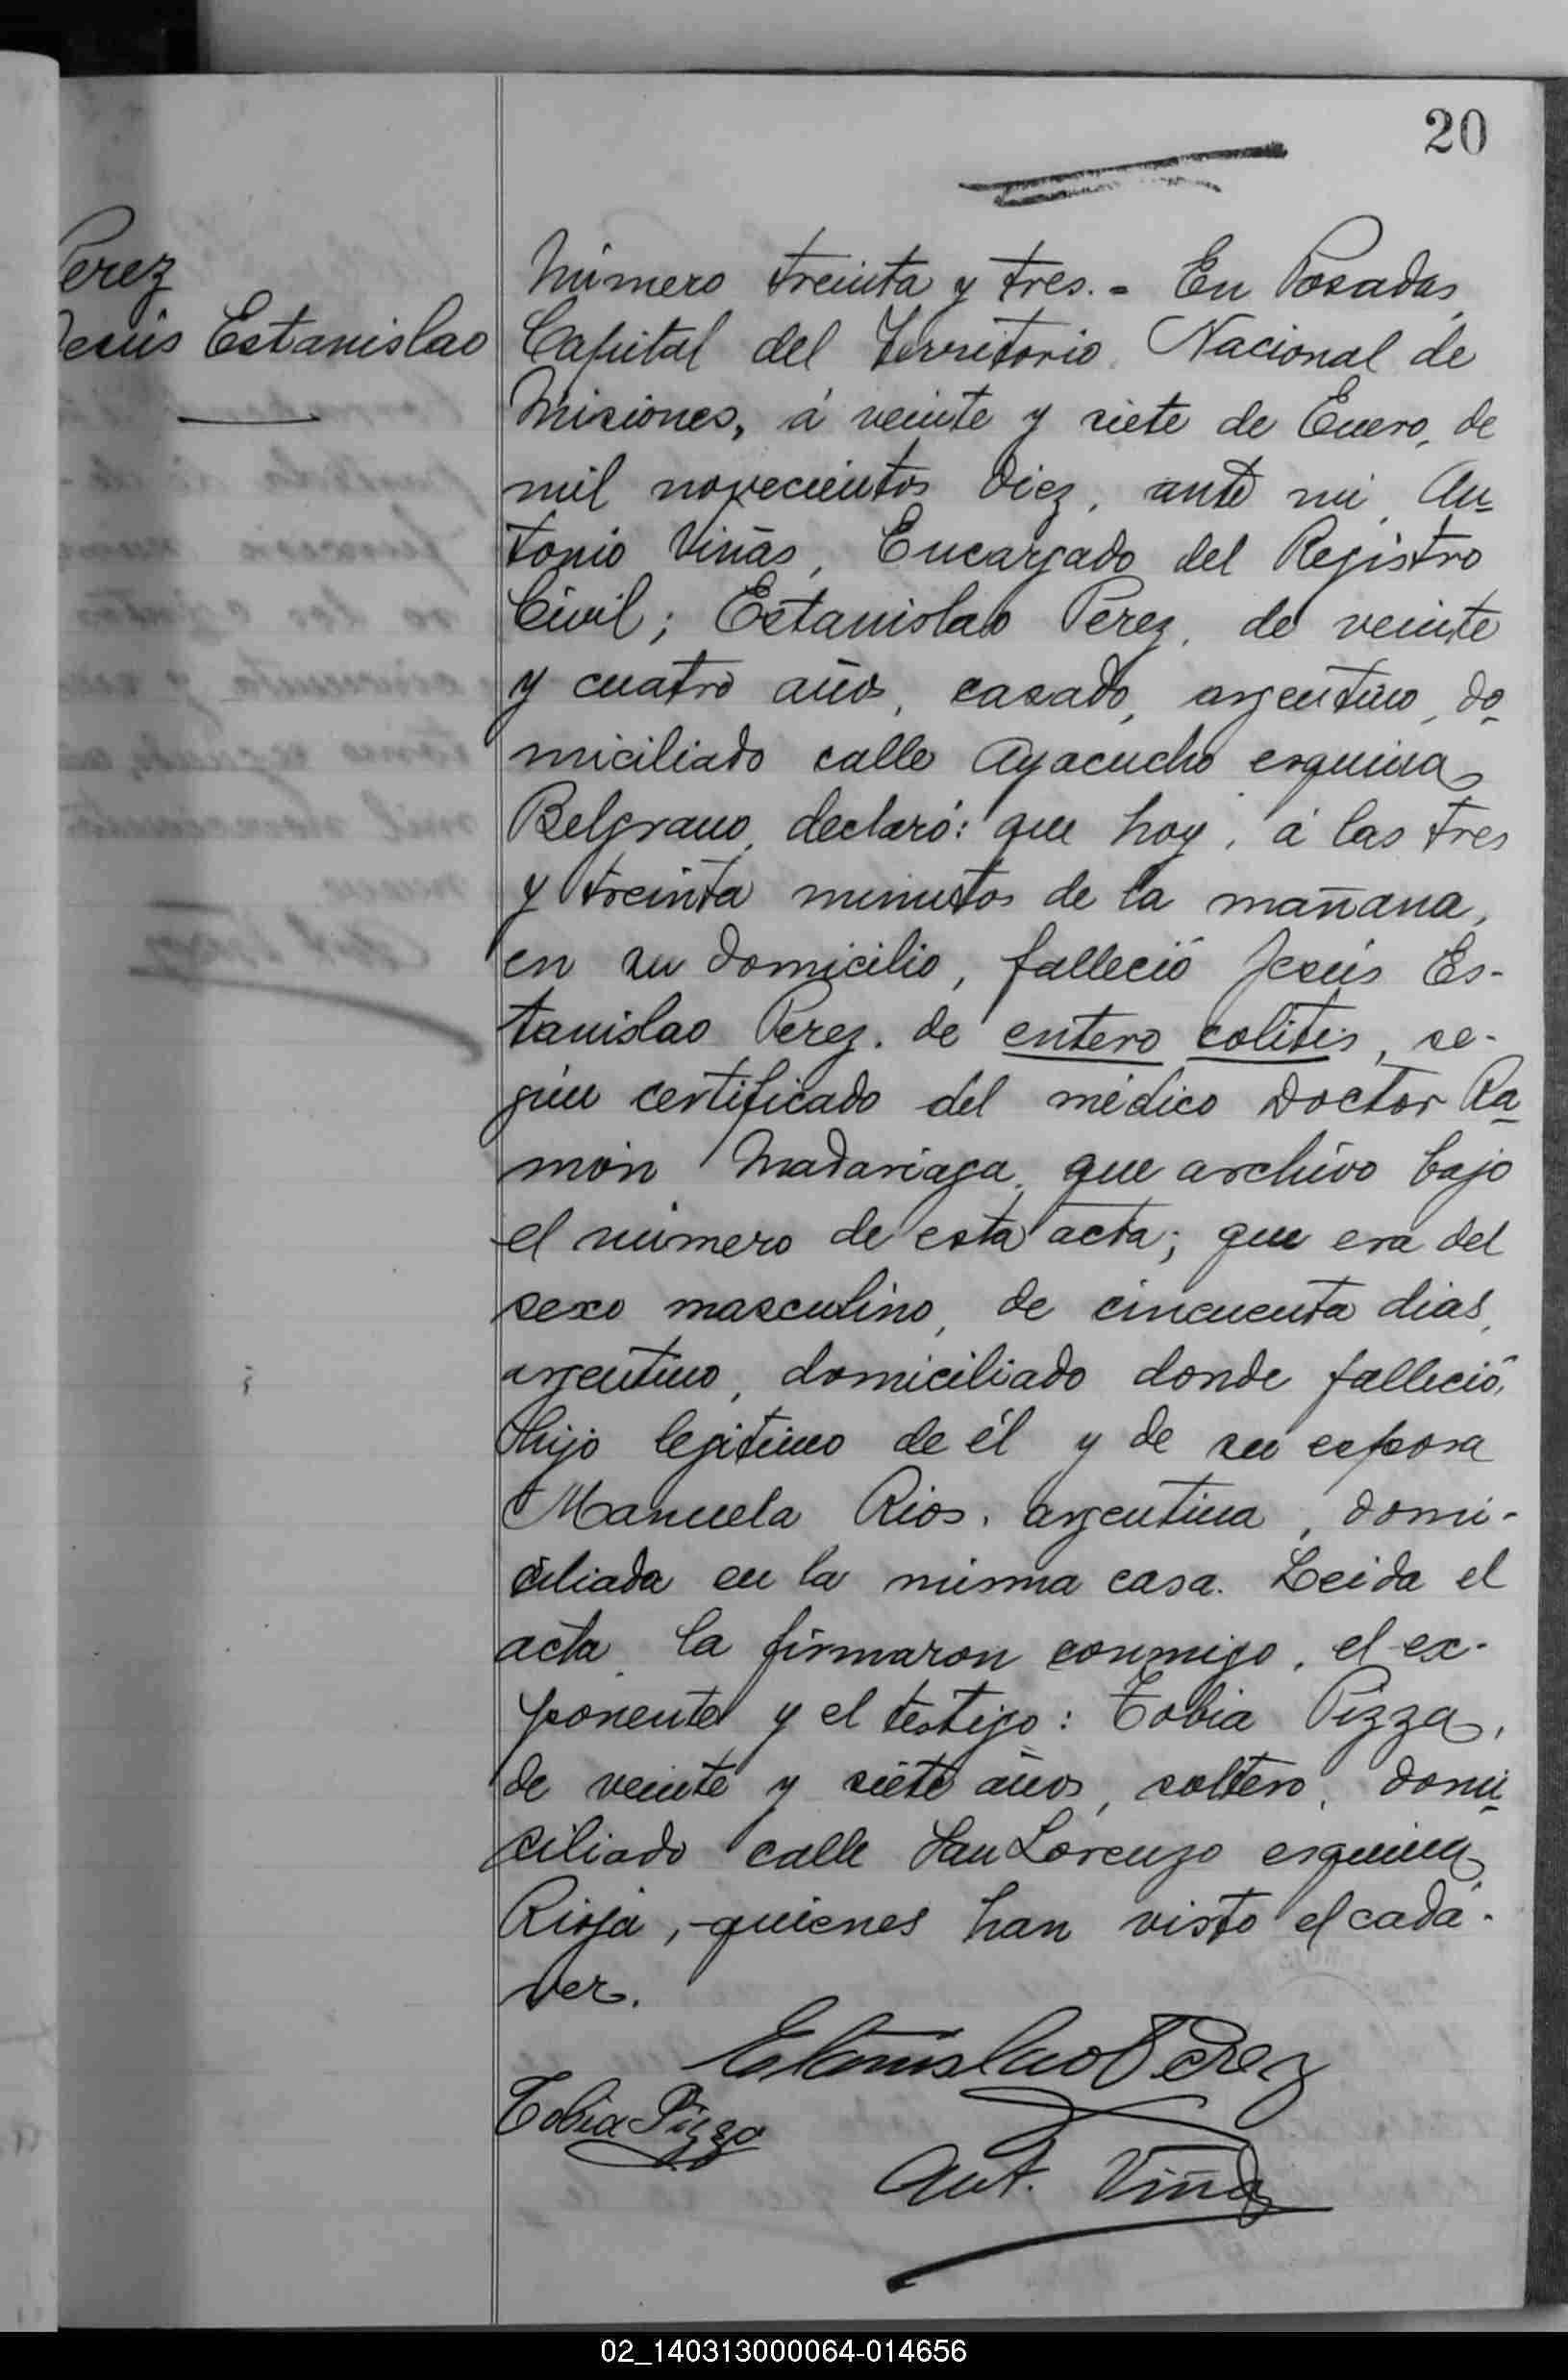 20
Perez
Jesús Estanislao
Número treinta y tres. = En Posadas,
Capital del Territorio Nacional de
Misiones, á veinte y siete de Enero, de
mil novecientos diez, ante mi, An=
tonio Viñas, Encargado del Registro
Civil; Estanislao Perez, de veinte
y cuatro años, casado, argentino, do=
miciliado calle Ayacucho esquina
Belgrano, declaró: que hoy, á las tres
y treinta minutos de la mañana,
en su domicilio, falleció Jesús Es-
tanislao Perez. de entero colitis, se-
gún certificado del médico Doctor Ra=
món Madariaga, que archivo bajo
el número de esta acta; que era del
sexo masculino, de cincuenta dias,
argentino, domiciliado donde falleció,
hijo legítimo de él y de su esposa
Manuela Rios, argentina, domi-
ciliada en la misma casa. Leida el
acta, la firmaron conmigo, el ex-
ponente y el testigo: Tobia Pizza,
de veinte y siete años, soltero, domi=
ciliado calle San Lorenzo esquina
Rioja, quienes han visto el cadá-
ver.
Estanislao Perez
Tobia Pizza
Ant. Viñas
02_140313000064-014656